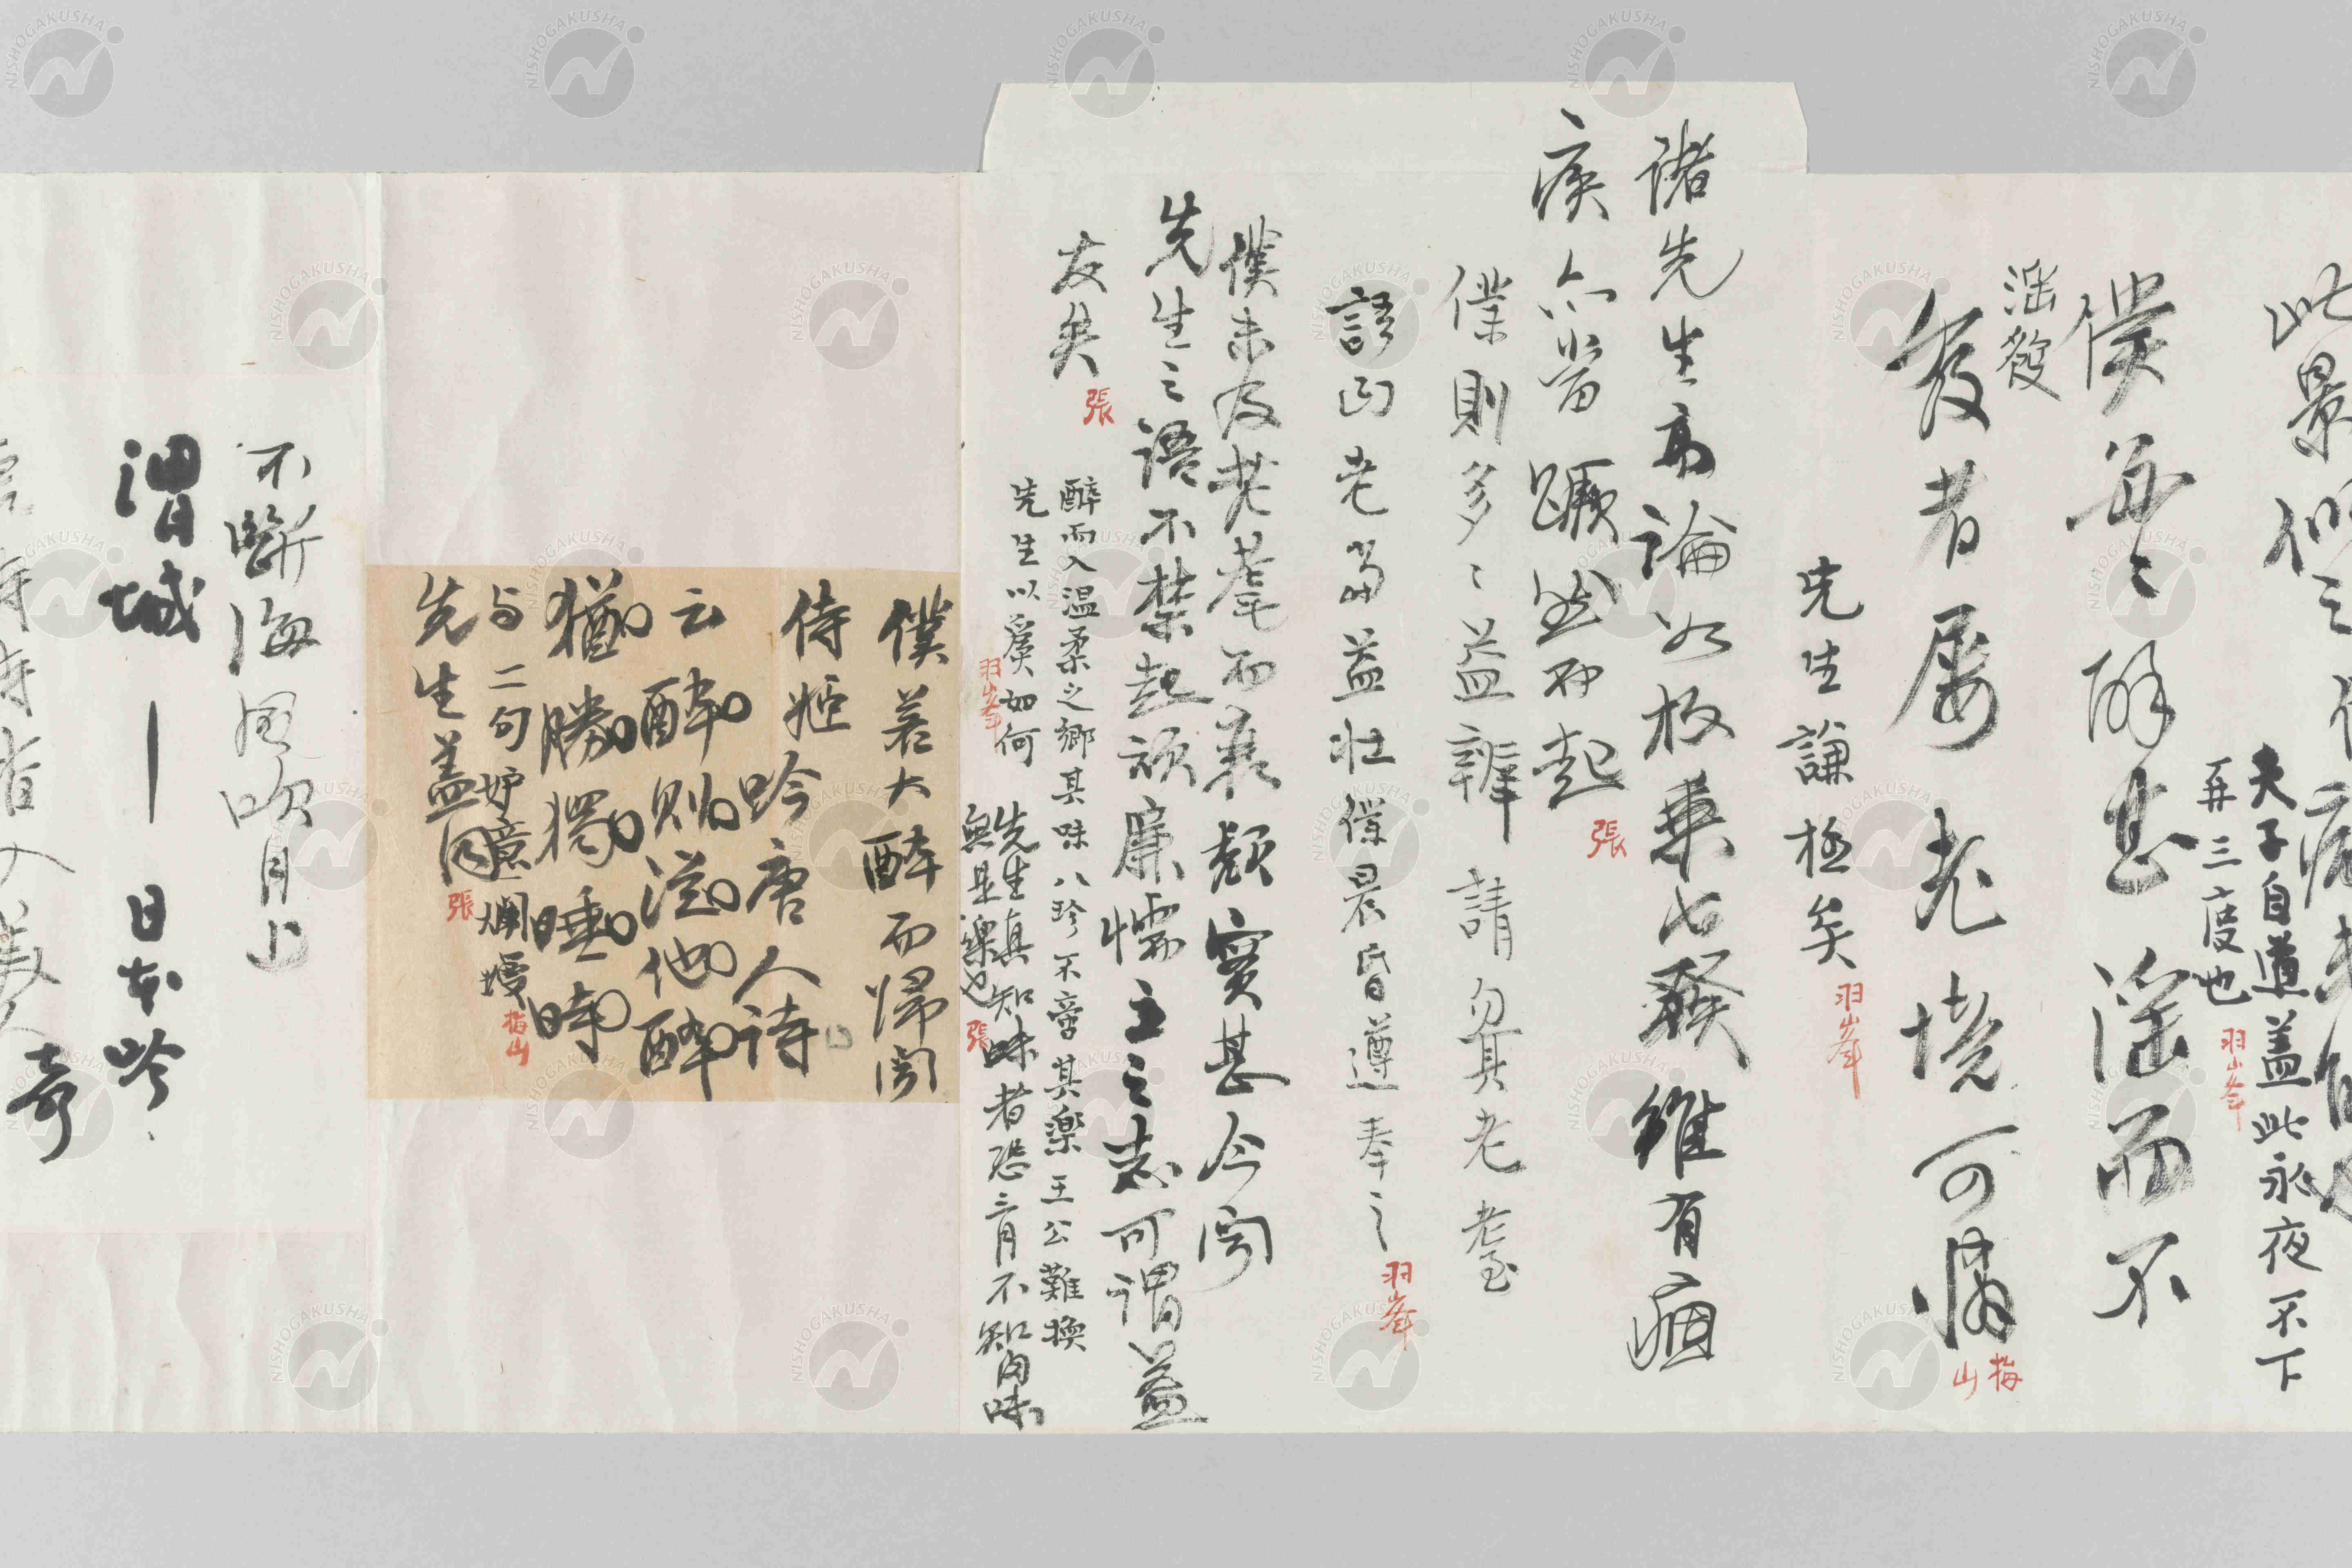 此景似之
夫子自道蓋此永夜不下
再三度也
羽峯
僕每々醉甚淫而不
淫發
發者屡老境可憐
梅山
先生謙極矣
羽峯
諸先生高論如枚乘七發雖有痼
疾亦當蹶然而起
張
僕則多々益辨請勿具老耄
羽峯
語曰老當益壯僕晨昏遵奉之
僕未及老耄而衰頽實甚今聞
先生之語不禁起頑廉懦立之志可謂益
友矣
張
醉而入温柔之鄉其味八珍不啻其樂王公難換
先生以爲如何
羽峯
先生真知味者恐三月不知肉味
無是樂也
張
僕若大醉而歸閣
侍姬吟唐人詩
云醉則從他醉
猶勝獨睡時
与二句妒意爛熳
梅山
先生蓋同
張
不斷海風吹月上
渭城一日本吟
奇